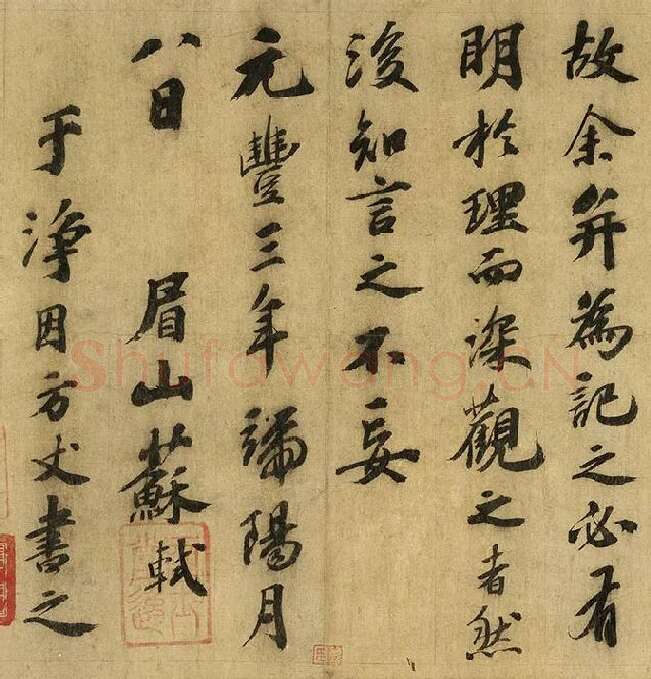 故余并為記之必有
明於理而深觀之者然
後知言之不妄
元豐三年端陽月
八日 眉山蘇軾
于淨因方丈書之
Shufawang.CN